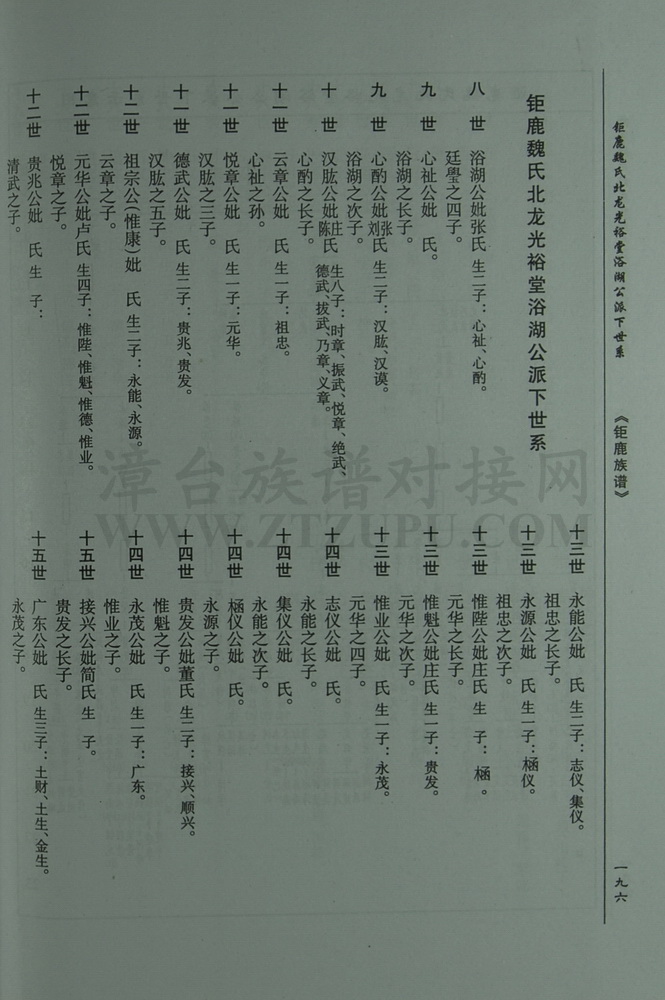 钜鹿魏氏北龙光裕堂浴湖公派下世系
《钜鹿族谱》
一九六
钜鹿魏氏北龙光裕堂浴湖公派下世系
八 世 浴湖公妣张氏 生二子：心祉、心酌。
廷璺之四子。
九 世 心祉公妣 氏。
浴湖之长子。
九 世 心酌公妣张刘氏 生二子：汉肱、汉谟。
浴湖之次子。
十 世 汉肱公妣庄陈氏 生八子：时章、振武、悦章、绝武、
德武、拔武、乃章、义章。
心酌之长子。
十一世 云章公妣 氏 生一子：祖忠。
心祉之孙。
十一世 悦章公妣 氏 生一子：元华。
汉肱之三子。
十一世 德武公妣 氏 生二子：贵兆、贵发。
汉肱之五子。
十二世 祖宗公（惟康）妣 氏 生二子：永能、永源。
云章之子。
十二世 元华公妣卢氏 生四子：惟陛、惟魁、惟德、惟业。
悦章之子。
十二世 贵兆公妣 氏 生 子：
清武之子。
十三世 永能公妣 氏 生二子：志仪、集仪。
祖忠之长子。
十三世 永源公妣 氏 生一子：梱仪。
祖忠之次子。
十三世 惟陛公妣庄氏 生 子：梱 。
元华之长子。
十三世 惟魁公妣庄氏 生一子：贵发。
元华之次子。
十三世 惟业公妣 氏 生一子：永茂。
元华之四子。
十四世 志仪公妣 氏。
永能之长子。
十四世 集仪公妣 氏。
永能之次子。
十四世 梱仪公妣 氏。
永源之子。
十四世 贵发公妣董氏 生二子：接兴、顺兴。
惟魁之子。
十四世 永茂公妣 氏 生一子：广东。
惟业之子。
十五世 接兴公妣简氏 生 子。
贵发之长子。
十五世 广东公妣 氏 生三子：土财、土生、金生。
永茂之子。
漳台族谱对接网
WWW.ZTZUPU.COM